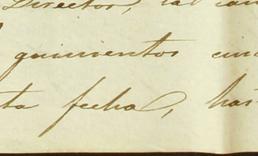 Director, la can
quinientos cin
ta fecha, has